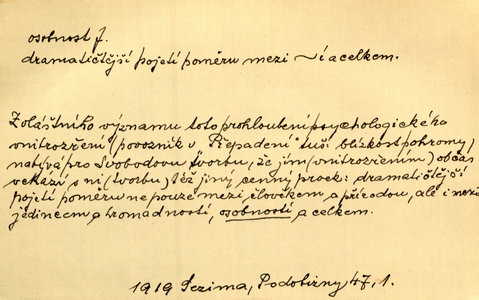 osobnost f.
dramatičtější pojetí poměru mezi ~í a celkem.
Zvláštního významu toto prohloubení psychologického
vnitrozření (povozník v "Přepadení" tuší blízkost pohromy)
nabývá pro Svobodovu tvorbu, že jím (vnitrozřením) občas
vchází v ni (tvorbu) též jiný cenný prvek: dramatičtější
pojetí poměru ne pouze mezi člověkem a přírodou, ale i mezi
jedincem a hromadností, osobností a celkem.
1919 Sezima, Podobizny 47, 1.